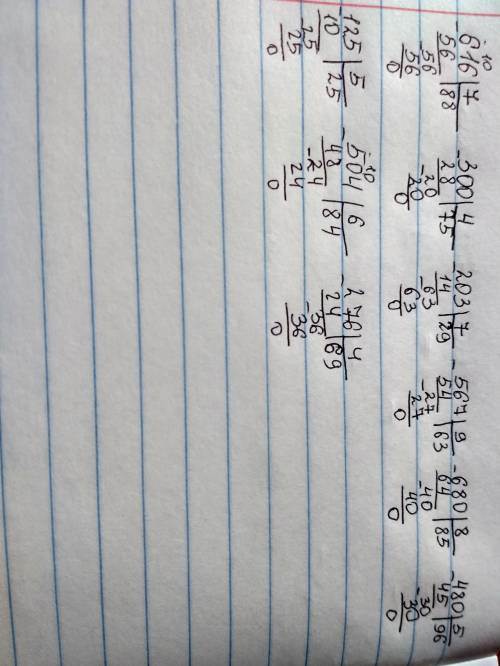 10
-616|7 -300|4 -203|7 -567|9 -680|8 -480|5
56|88 28|75 14|29 54|63 64|85 45|96
-56 -20 -63 -27 -40 -30
56 20 63 27 40 30
0 0 0 0 0 0
10
-125|5 -504|6 -276|4
10|25 48|84 24|69
-25 -24 -36
25 24 36
0 0 0